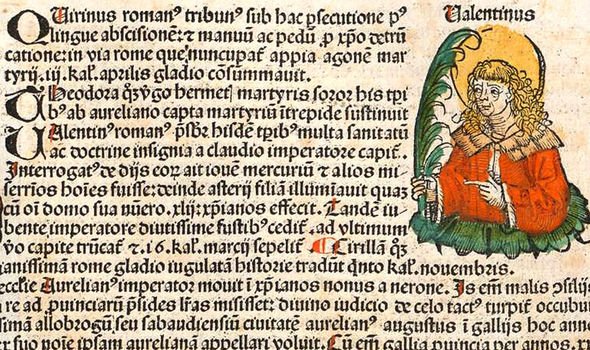 QUirinus roman⁹ tribun⁹ sub hac ꝑsecutione p⁹
lingue abscissionē: ⁊ manuū ac pedū ꝓ xp̄o detrū
cationē: in via rome que nuncupat᷑ appia agonē mar
tyrij .iij. kal᷑. aprilis gladio cōsummauit.
THeodora q̄ꝫ v̓go hermetꝭ martyris soror his tp̄i
b⁹ ab aureliano capta martyriū ītrepide sustinuit
VAlentin⁹ roman⁹ p̄sbr̄ hisdē tp̄ib⁹ multa sanitatū
ac doctrine insignia a claudio imperatore capit᷑.
Interrogat⁹ de dijs eoꝝ ait iouē mercuriū ⁊ alios mi-
serrīos hoīes fuisse: deinde asterij filiā illumīauit quaꝫ
cū oī domo sua nūero .xliij. xp̄ianos effecit. Tandē iu-
bente imperatore diutissime fustib⁹ cedit᷑. ad vltimum
v̓o capite trūcat᷑ ⁊ .16. kal᷑. marcij sepelit᷑ ¶ Cirillā q̄ꝫ
anissimā rome gladio iugulatā historie tradūt q̄nto kal᷑. nouembris.
ecclie Aurelian⁹ imperator mouit ī xp̄ianos nonus a nerone. Is em̄ malis ꝯsilijs
re ad ꝓuinciarū p̄sides lr̄as misisset: diuino iudicio de celo tact⁹ turpit̓ occubu
simā allobrogū seu sabaudiensiū ciuitatē aurelian⁹ augustus ī gallijs hoc anno
suo noīe ipsam aurelianā appellari voluit. Cū em̄ gallia ꝓuincia per annos .x
Ualentinus